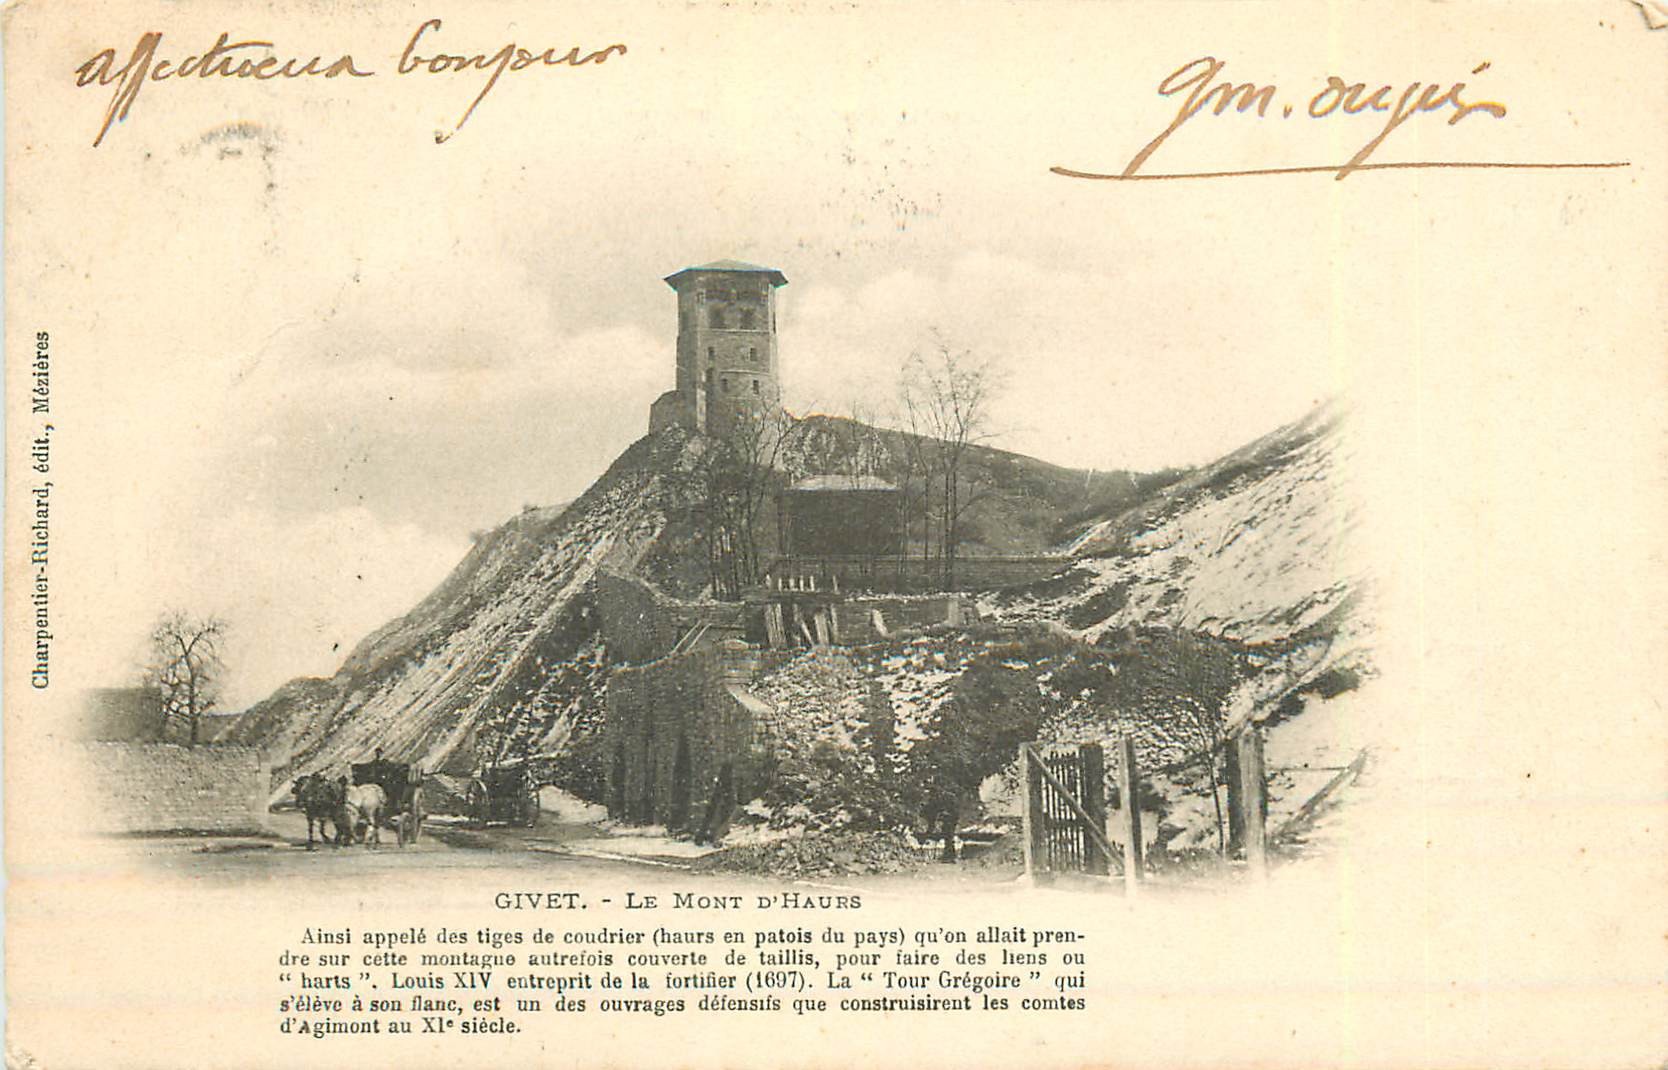 affectueux bonjour
Charpentier-Richard, édit., Mézières
GIVET. - LE MONT D'HAURS
Ainsi appelé des tiges de coudrier (haurs en patois du pays) qu'on allait pren-
dre sur cette montagne autrefois couverte de taillis, pour faire des liens ou
“ harts ”. Louis XIV entreprit de la fortifier (1697). La “ Tour Grégoire ” qui
s'élève à son flanc, est un des ouvrages défensifs que construisirent les comtes
d'Agimont au XIe siècle.